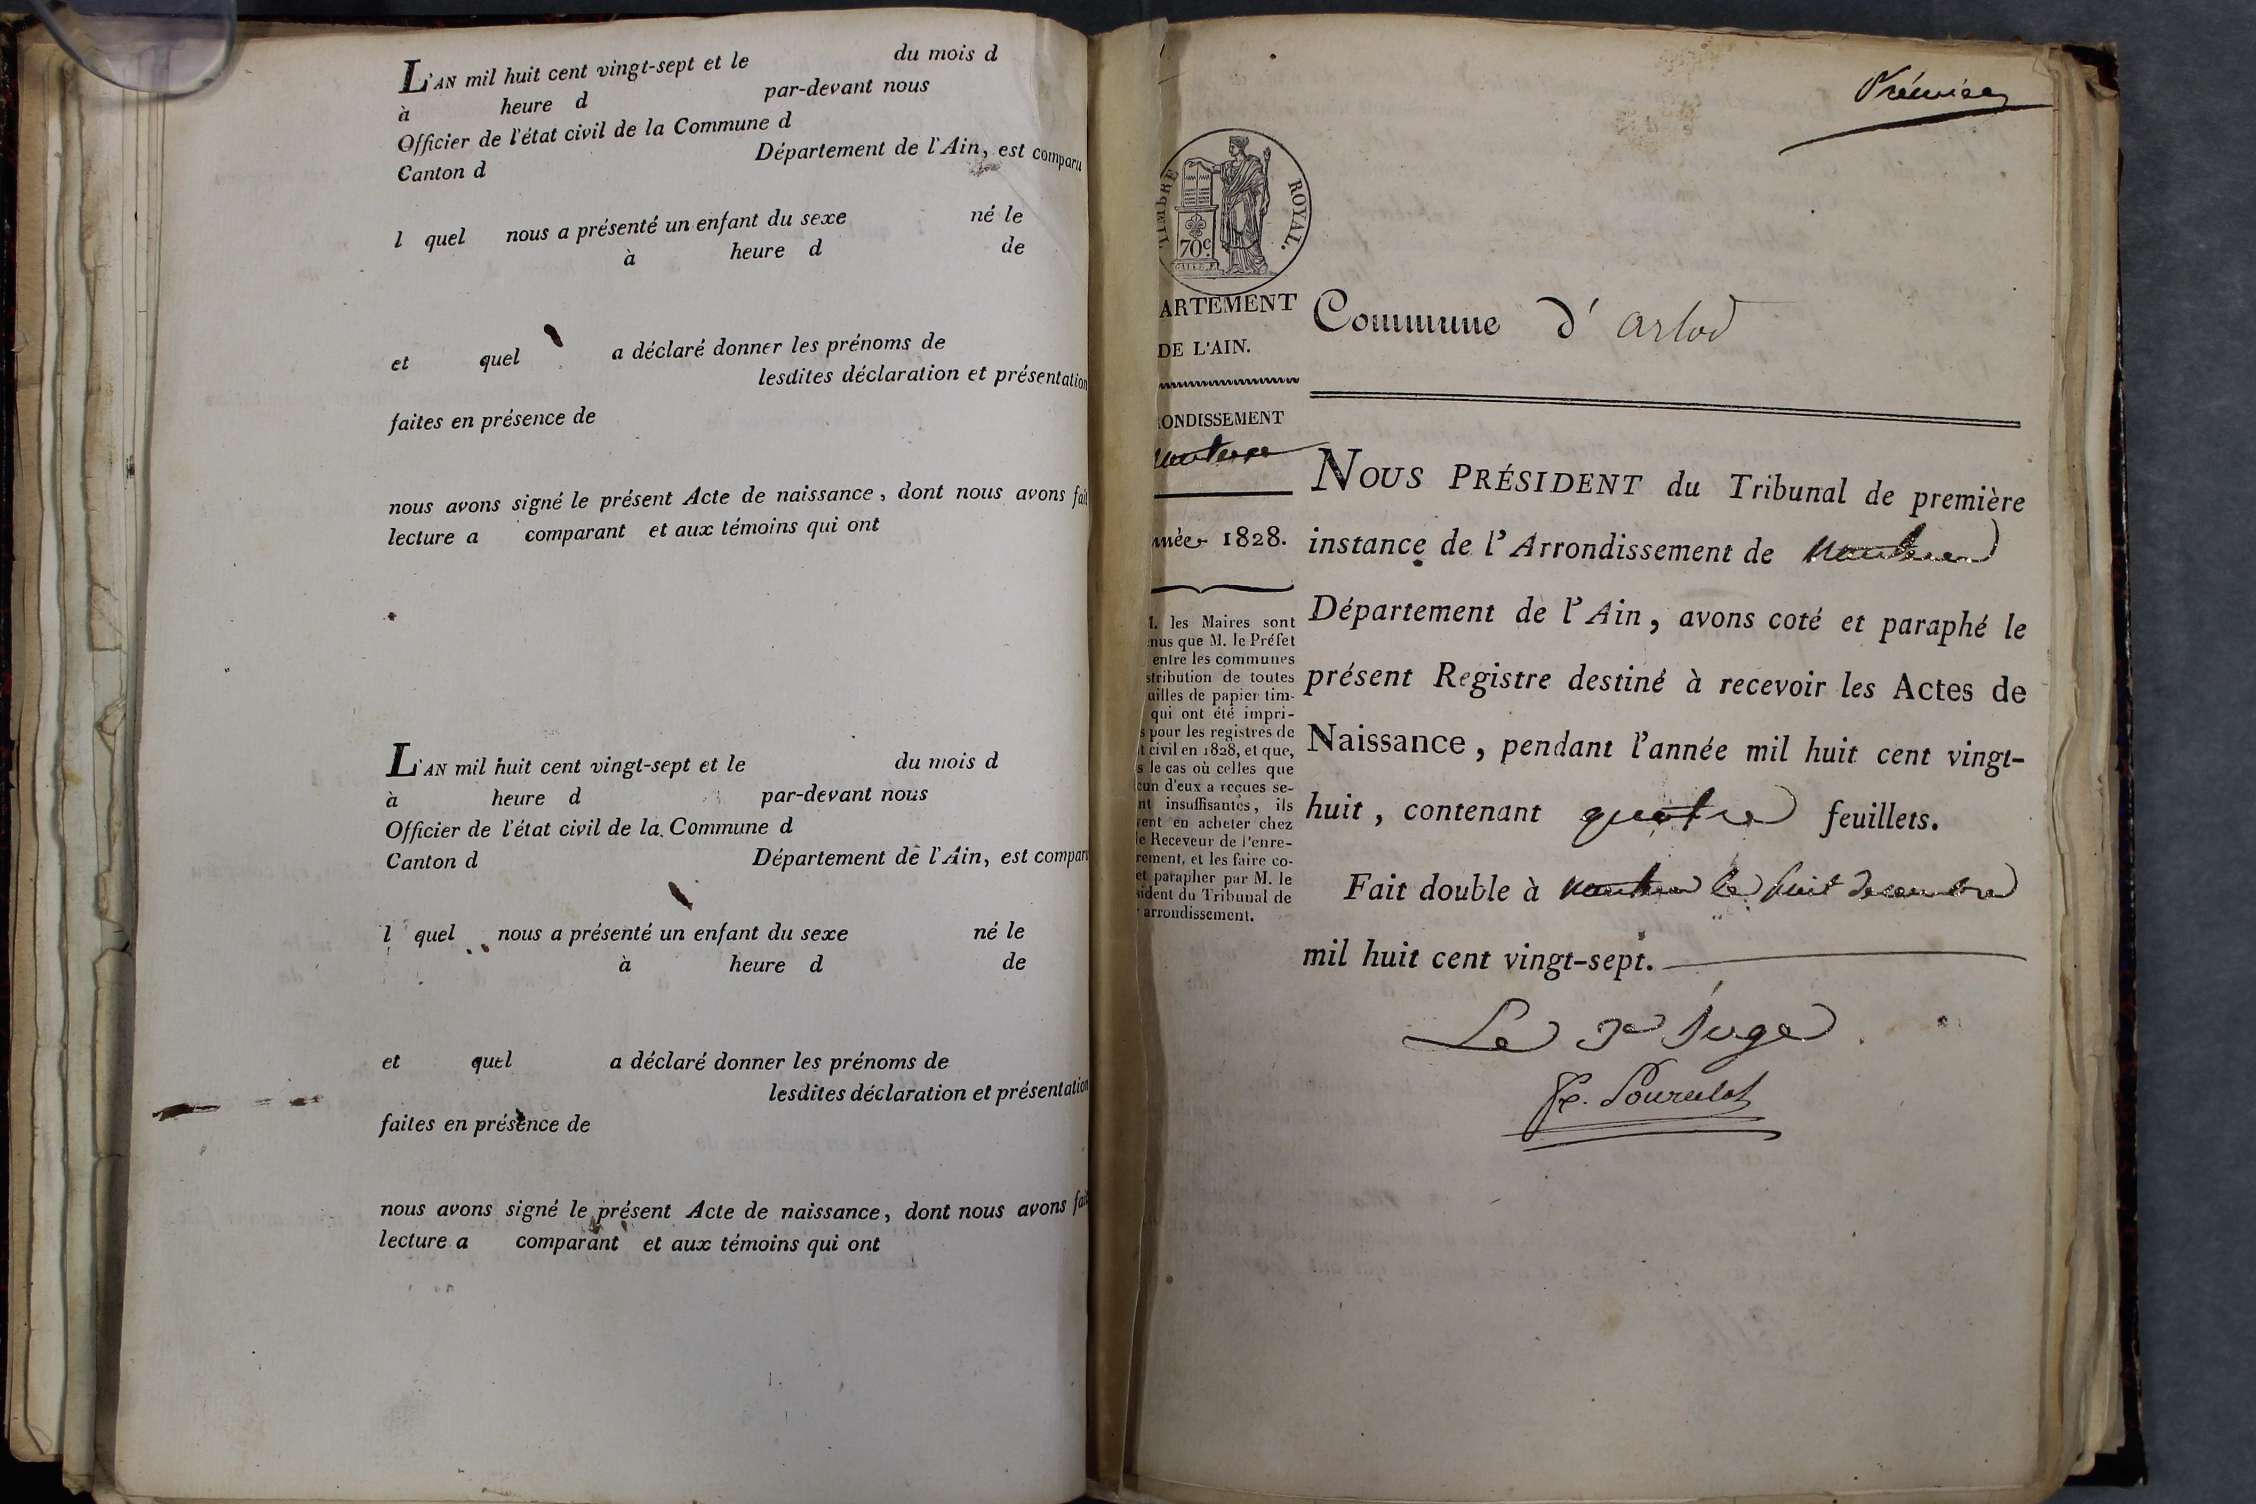 L'AN mil huit cent vingt-sept et le du mois d
à heure d par-devant nous
Officier de l'état civil de la Commune d
Canton d Département de l'Ain, est comparu
l quel nous a présenté un enfant du sexe né le
à heure d de
et quel a déclaré donner les prénoms de
lesdites déclaration et présentation
faites en présence de
nous avons signé le présent Acte de naissance, dont nous avons fait
lecture a comparant et aux témoins qui ont
L'AN mil huit cent vingt-sept et le du mois d
à heure d par-devant nous
Officier de l'état civil de la Commune d
Canton d Département de l'Ain, est comparu
l quel nous a présenté un enfant du sexe né le
à heure d de
et quel a déclaré donner les prénoms de
lesdites déclaration et présentation
faites en présence de
nous avons signé le présent Acte de naissance, dont nous avons fait
lecture a comparant et aux témoins qui ont
TIMBRE ROYAL.
70c.
ARTEMENT
DE L'AIN.
RONDISSEMENT
nnée 1828.
les Maires sont
nus que M. le Préfet
entre les communes
stribution de toutes
uilles de papier tim-
qui ont été impri-
s pour les registres de
t civil en 1828, et que,
s le cas où celles que
cun d'eux a reçues se-
nt insuffisantes, ils
vent en acheter chez
le Receveur de l'enre-
rement, et les faire co-
et parapher par M. le
sident du Tribunal de
arrondissement.
Premier
Commune d' arlod
NOUS PRÉSIDENT du Tribunal de première
instance de l'Arrondissement de Nantua
Département de l'Ain, avons coté et paraphé le
présent Registre destiné à recevoir les Actes de
Naissance, pendant l'année mil huit cent vingt-
huit, contenant quatre feuillets.
Fait double à Nantua le huit decembre
mil huit cent vingt-sept.
Le Juge